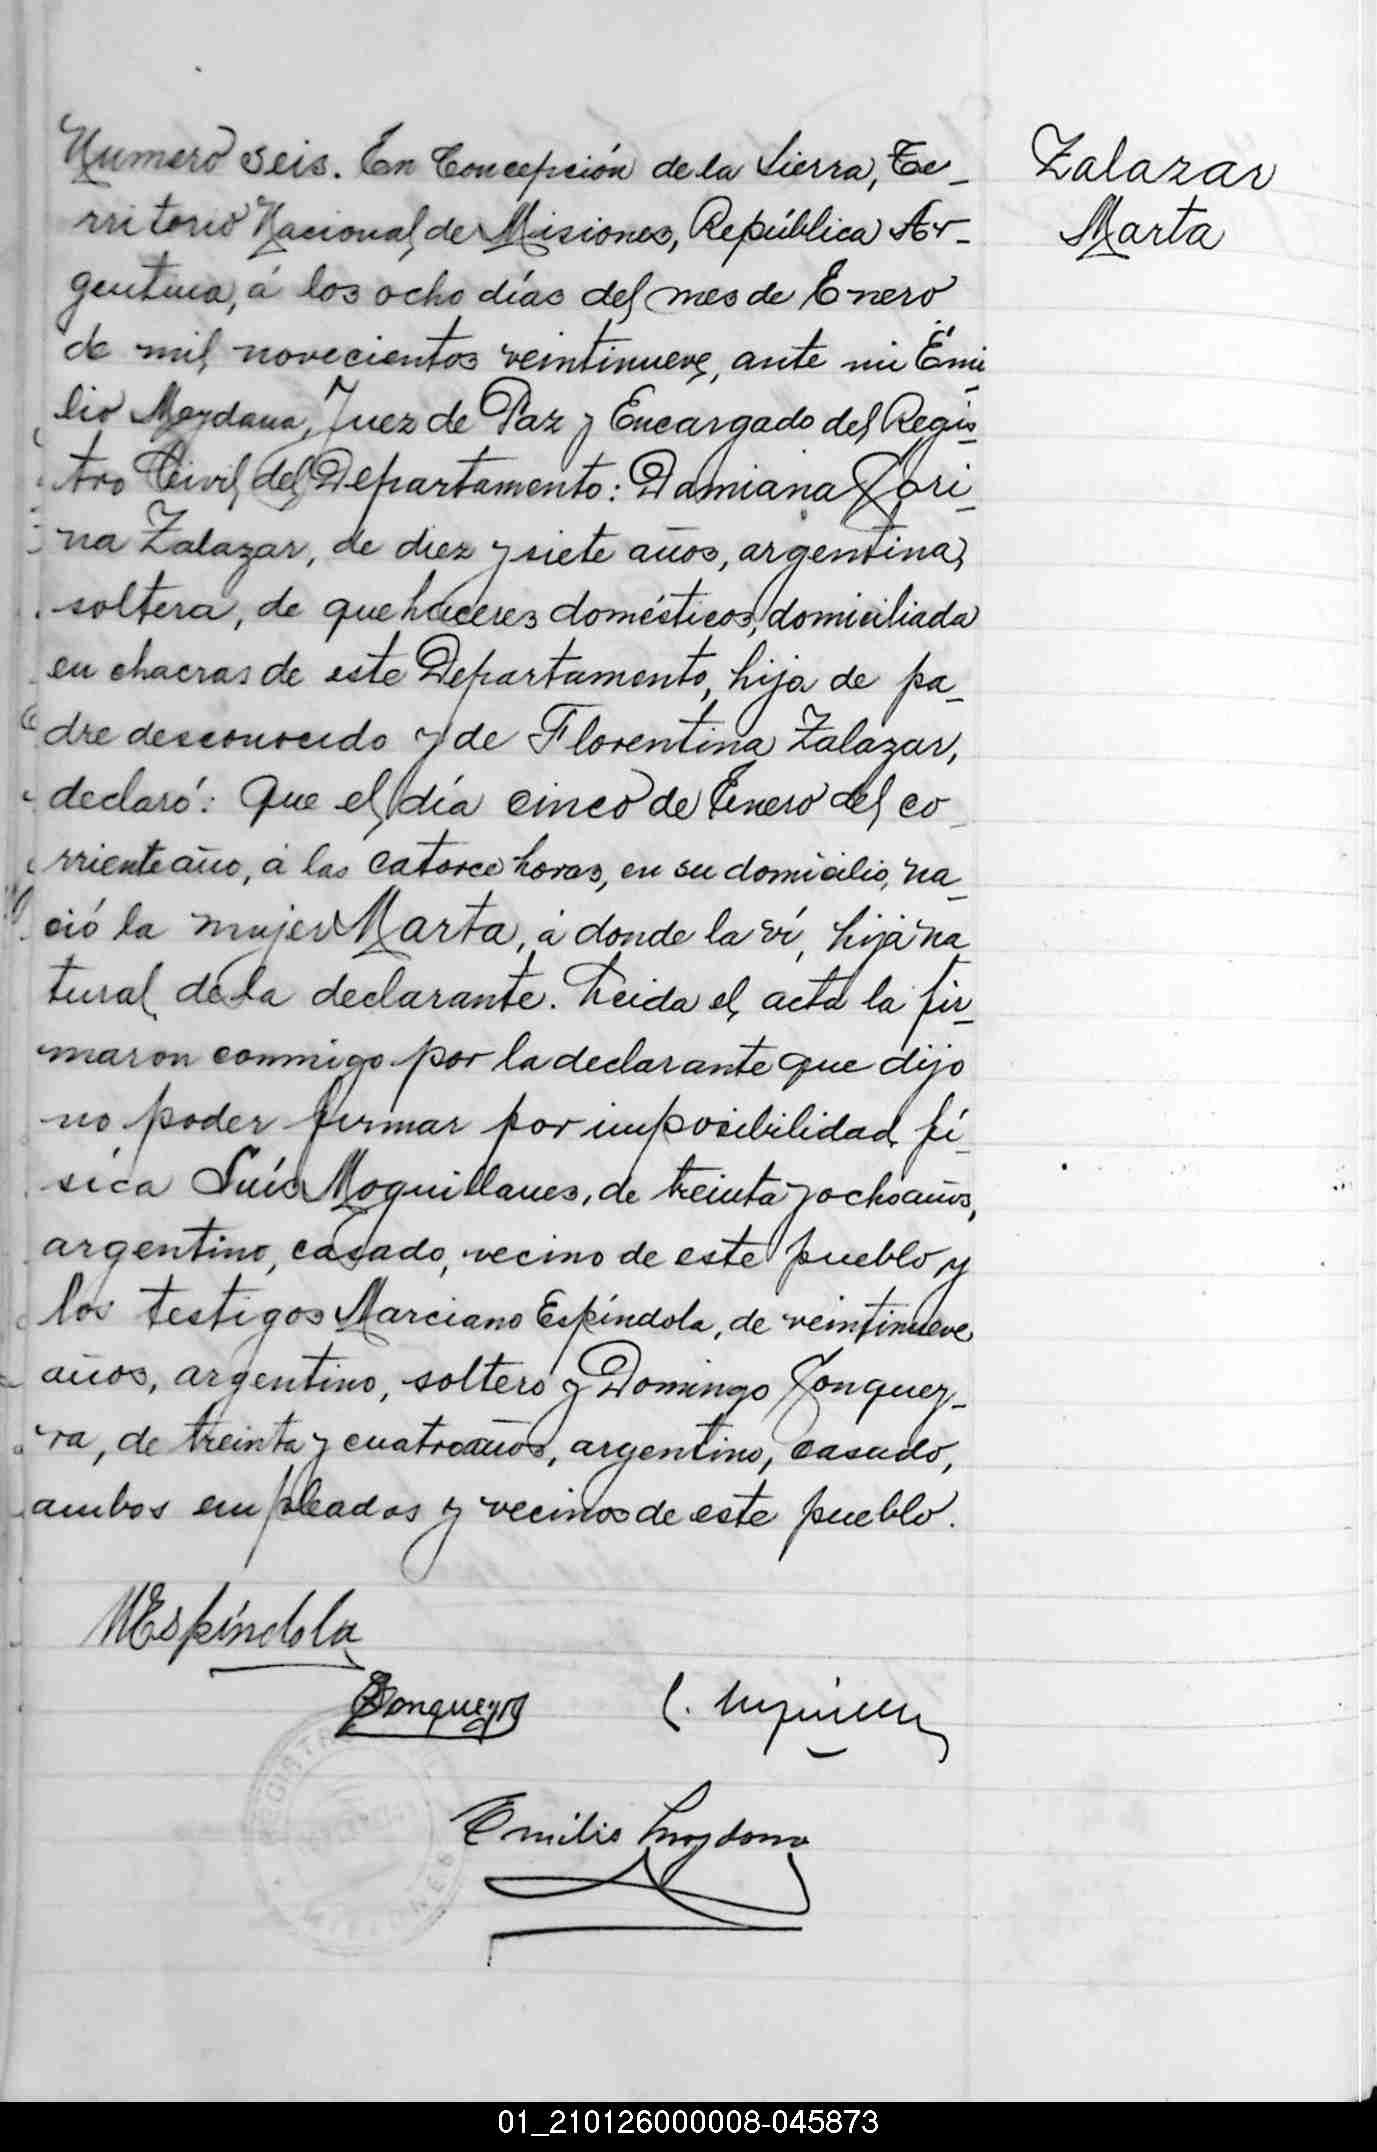 Numero seis. En Concepción de la Sierra, Te_
rritorio Nacional de Misiones, República Ar_
gentina, á los ocho días del mes de Enero
de mil novecientos veintinueve, ante mi Emi_
lio Moydana, Juez de Paz y Encargado del Regis_
tro Civil del Departamento: Damiana Cori_
na Zalazar, de diez y siete años, argentina,
soltera, de quehaceres domésticos, domiciliada
en chacras de este Departamento, hija de pa_
dre desconocido y de Florentina Zalazar,
declaró: Que el día cinco de Enero del co_
rriente año, á las catorce horas, en su domicilio, na_
ció la mujer Marta, á donde la ví, hija na
tural de la declarante. Leida el acta la fir_
maron conmigo por la declarante que dijo
no poder firmar por imposibilidad fí_
sica Luís Moquillanes, de treinta y ocho años,
argentino, casado, vecino de este pueblo y
los testigos Marciano Espíndola, de veintinueve
años, argentino, soltero y Domingo Jonquey_
ra, de treinta y cuatro años, argentino, casado,
ambos empleados y vecinos de este pueblo.
Zalazar
Marta
MEspíndola
Jonqueyra
Emilio Moydana
01_210126000008-045873